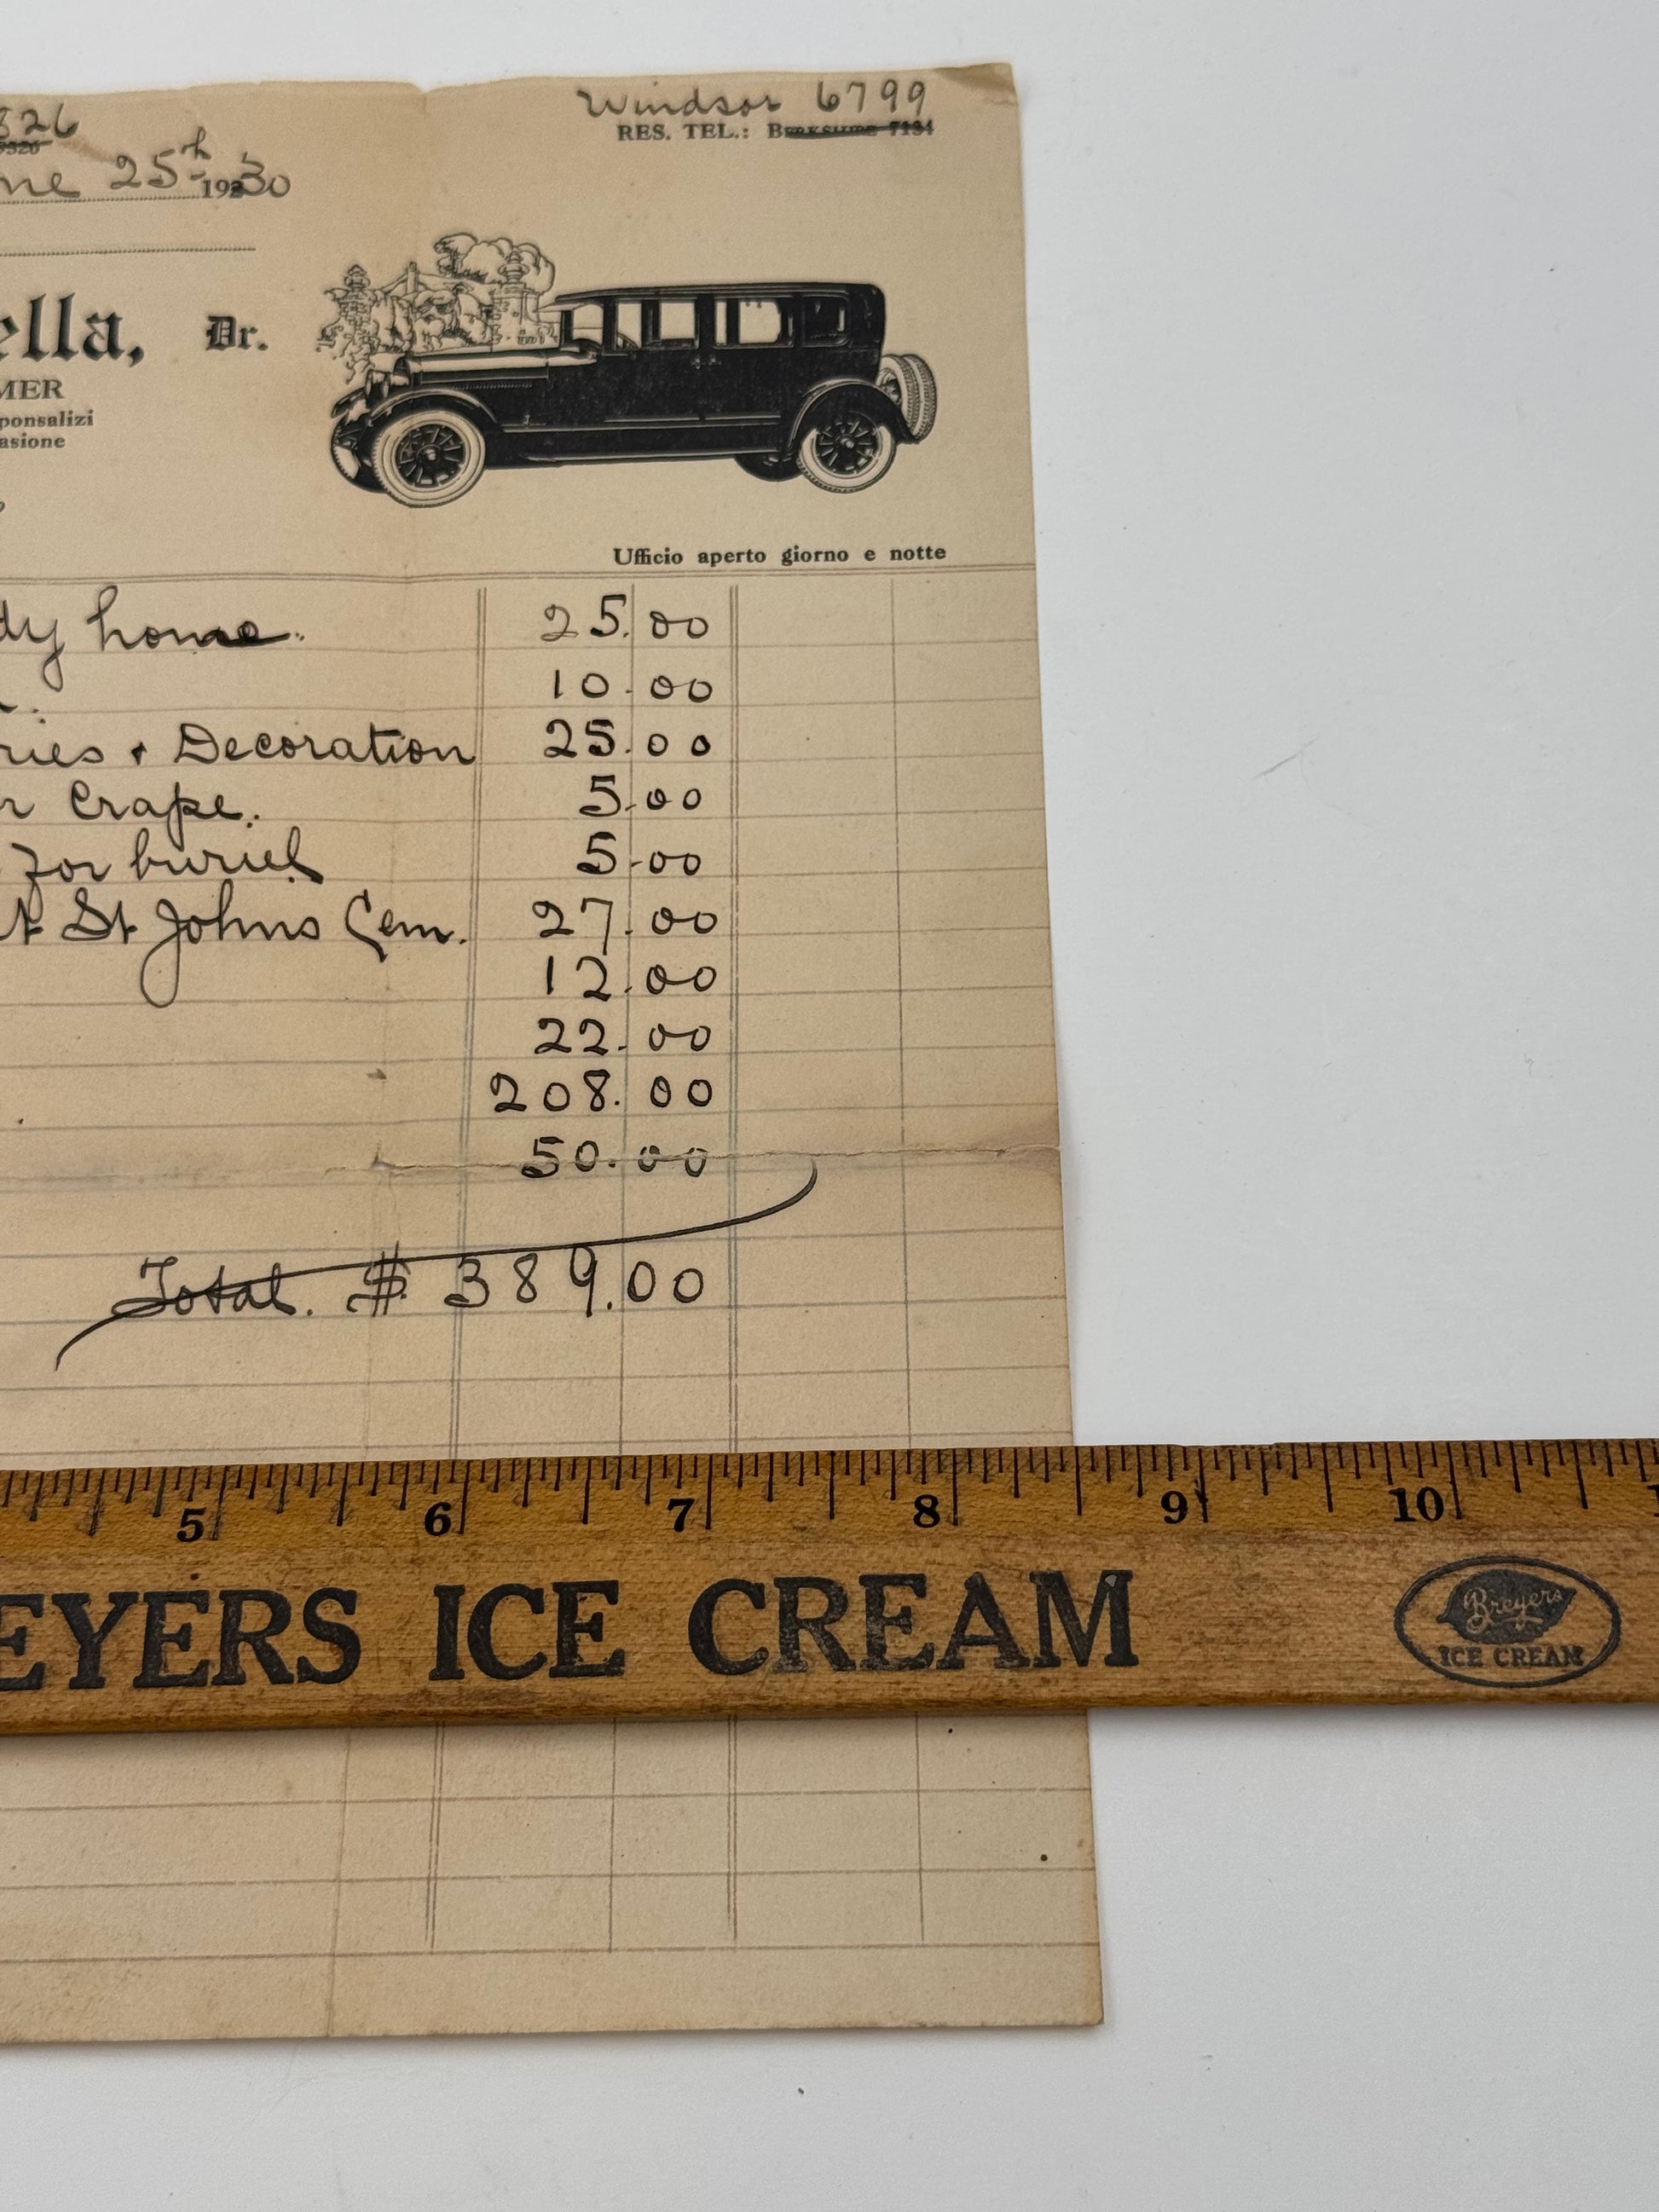 Windsor 6799
326
RES. TEL.: BERKSHIRE 7134
9326
ne 25th 1930
ella, Dr.
MER
ponsalizi
asione
Ufficio aperto giorno e notte
dy home. 25.00
10.00
ries + Decoration 25.00
r Crape. 5.00
for buriel 5.00
t St Johns Cem. 27.00
12.00
22.00
208.00
50.00
Total. $ 389.00
5 6 7 8 9 10 1
EYERS ICE CREAM
Breyers
ICE CREAM